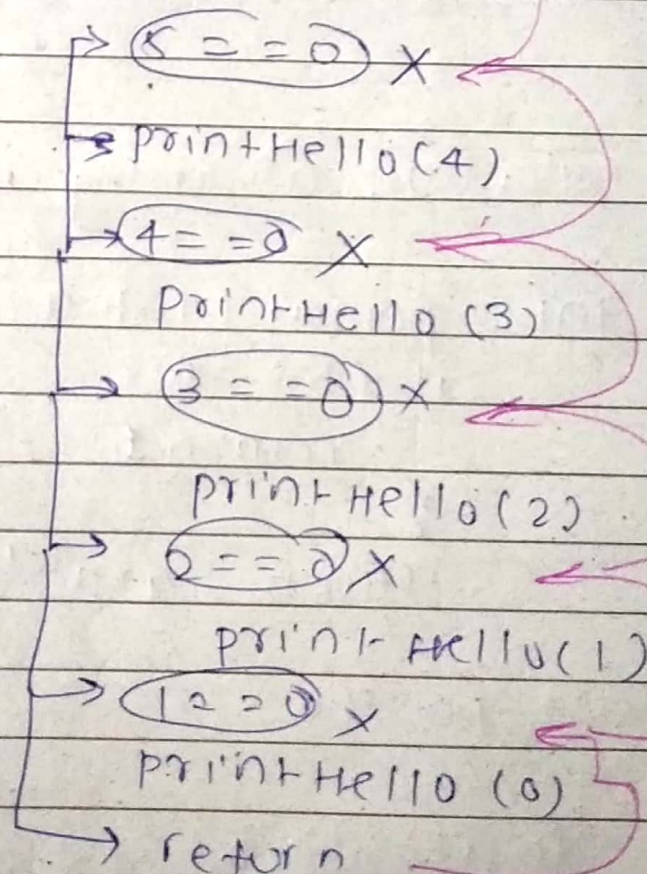 5 = = 0 X
printHello(4)
4 = = 0 X
printHello (3)
3 = = 0 X
print Hello (2)
2 = = 0 X
print Hello(1)
1 = = 0 X
print Hello (0)
return